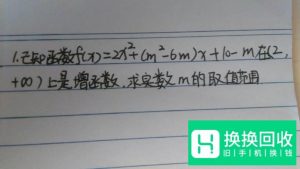 1.已知函数f(x)=2x²+(m²-6m)x+10-m在(2,
+∞)上是增函数,求实数m的取值范围
换换回收
旧手机换钱